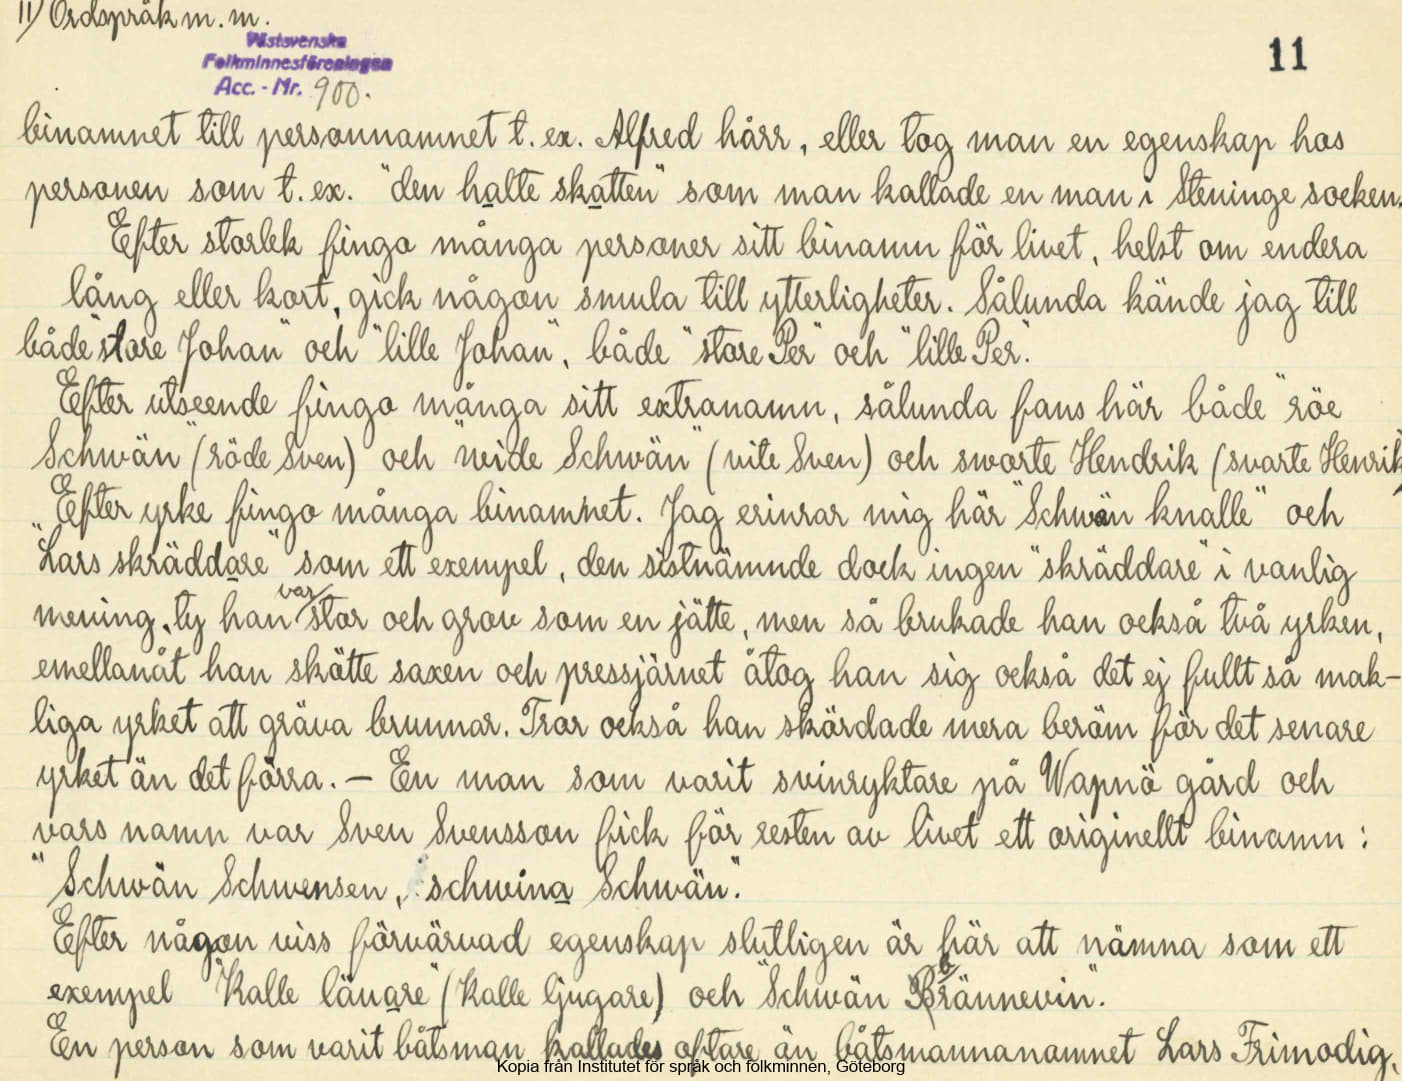 11) Ordspråk m. m.
Västsvenska
Folkminnesföreningen
Acc. - Nr. 900.
11
binamnet till personnamnet t. ex. Alfred hårr, eller tog man en egenskap hos
personen som t. ex. "den halte skatten" som man kallade en man i Steninge socken.
Efter storlek fingo många personer sitt binamn för livet, helst om endera
lång eller kort, gick någon smula till ytterligheter. Sålunda kände jag till
både "store Johan" och "lille Johan", både "store Per" och "lille Per".
Efter utseende fingo många sitt extranamn, sålunda fans här både "röe
Schwän" (röde Sven) och "wide Schwän" (vite Sven) och sworte Hendrik (svarte Henrik)
Efter yrke fingo många binamnet. Jag erinrar mig här "Schwän knalle" och
"Lars skräddare" som ett exempel, den sistnämnde dock ingen "skräddare" i vanlig
mening, ty han var stor och grov som en jätte, men så brukade han också två yrken,
emellanåt han skötte saxen och pressjärnet åtog han sig också det ej fullt så mak-
liga yrket att gräva brunnar. Tror också han skördade mera beröm för det senare
yrket än det förra. — En man som varit svinryktare på Wapnö gård och
vars namn var Sven Svensson fick för resten av livet ett originellt binamn:
"Schwän Schwensen, schwina Schwän".
Efter någon viss förvärvad egenskap slutligen är här att nämna som ett
exempel "Kalle läuare" (Kalle ljugare) och "Schwän brännevin".
En person som varit båtsman kallades oftare än båtsmannanamnet Lars Frimodig,
Kopia från Institutet för språk och folkminnen, Göteborg